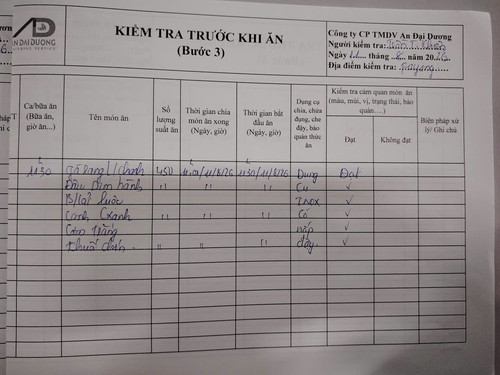 AD
AN DAI DUONG
KIỂM TRA TRƯỚC KHI ĂN
(Bước 3)
Công ty CP TMDV An Đại Dương
Người kiểm tra:
Ngày 11 tháng 8 năm 20
Địa điểm kiểm tra:
T
Ca/bữa ăn
(Bữa ăn,
giờ ăn...)
Tên món ăn
Số
lượng
suất ăn
Thời gian chia
món ăn xong
(Ngày, giờ)
Thời gian bắt
đầu ăn
(Ngày, giờ)
Dụng cụ
chia, chứa
đựng, che
đậy, bảo
quản thức
ăn
Kiểm tra cảm quan món ăn
(màu, mùi, vị, trạng thái, bảo
quản....)
Đạt
Không đạt
Biện pháp xử
lý/ Ghi chú
11h30 gà rang 450 11h30/11/8/26 Dụng Đạt
Đậu hành " " " Cụ ✓
luộc Inox ✓
Canh " " " Có ✓
Cơm trắng nắp ✓
chín " " " đậy ✓